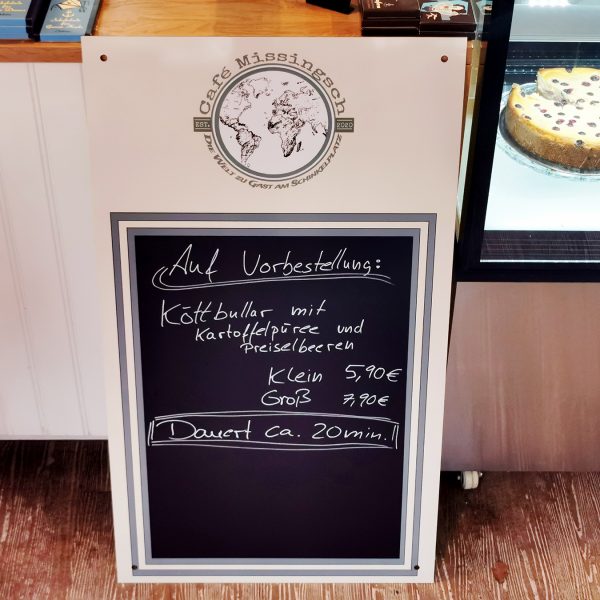 Café Missingsch
EST. 2020
Die Welt zu Gast am Schinkelplatz
Auf Vorbestellung:
Köttbullar mit
Kartoffelpüree und
Preiselbeeren
Klein 5,90€
Groß 7,90€
Dauert ca. 20min.